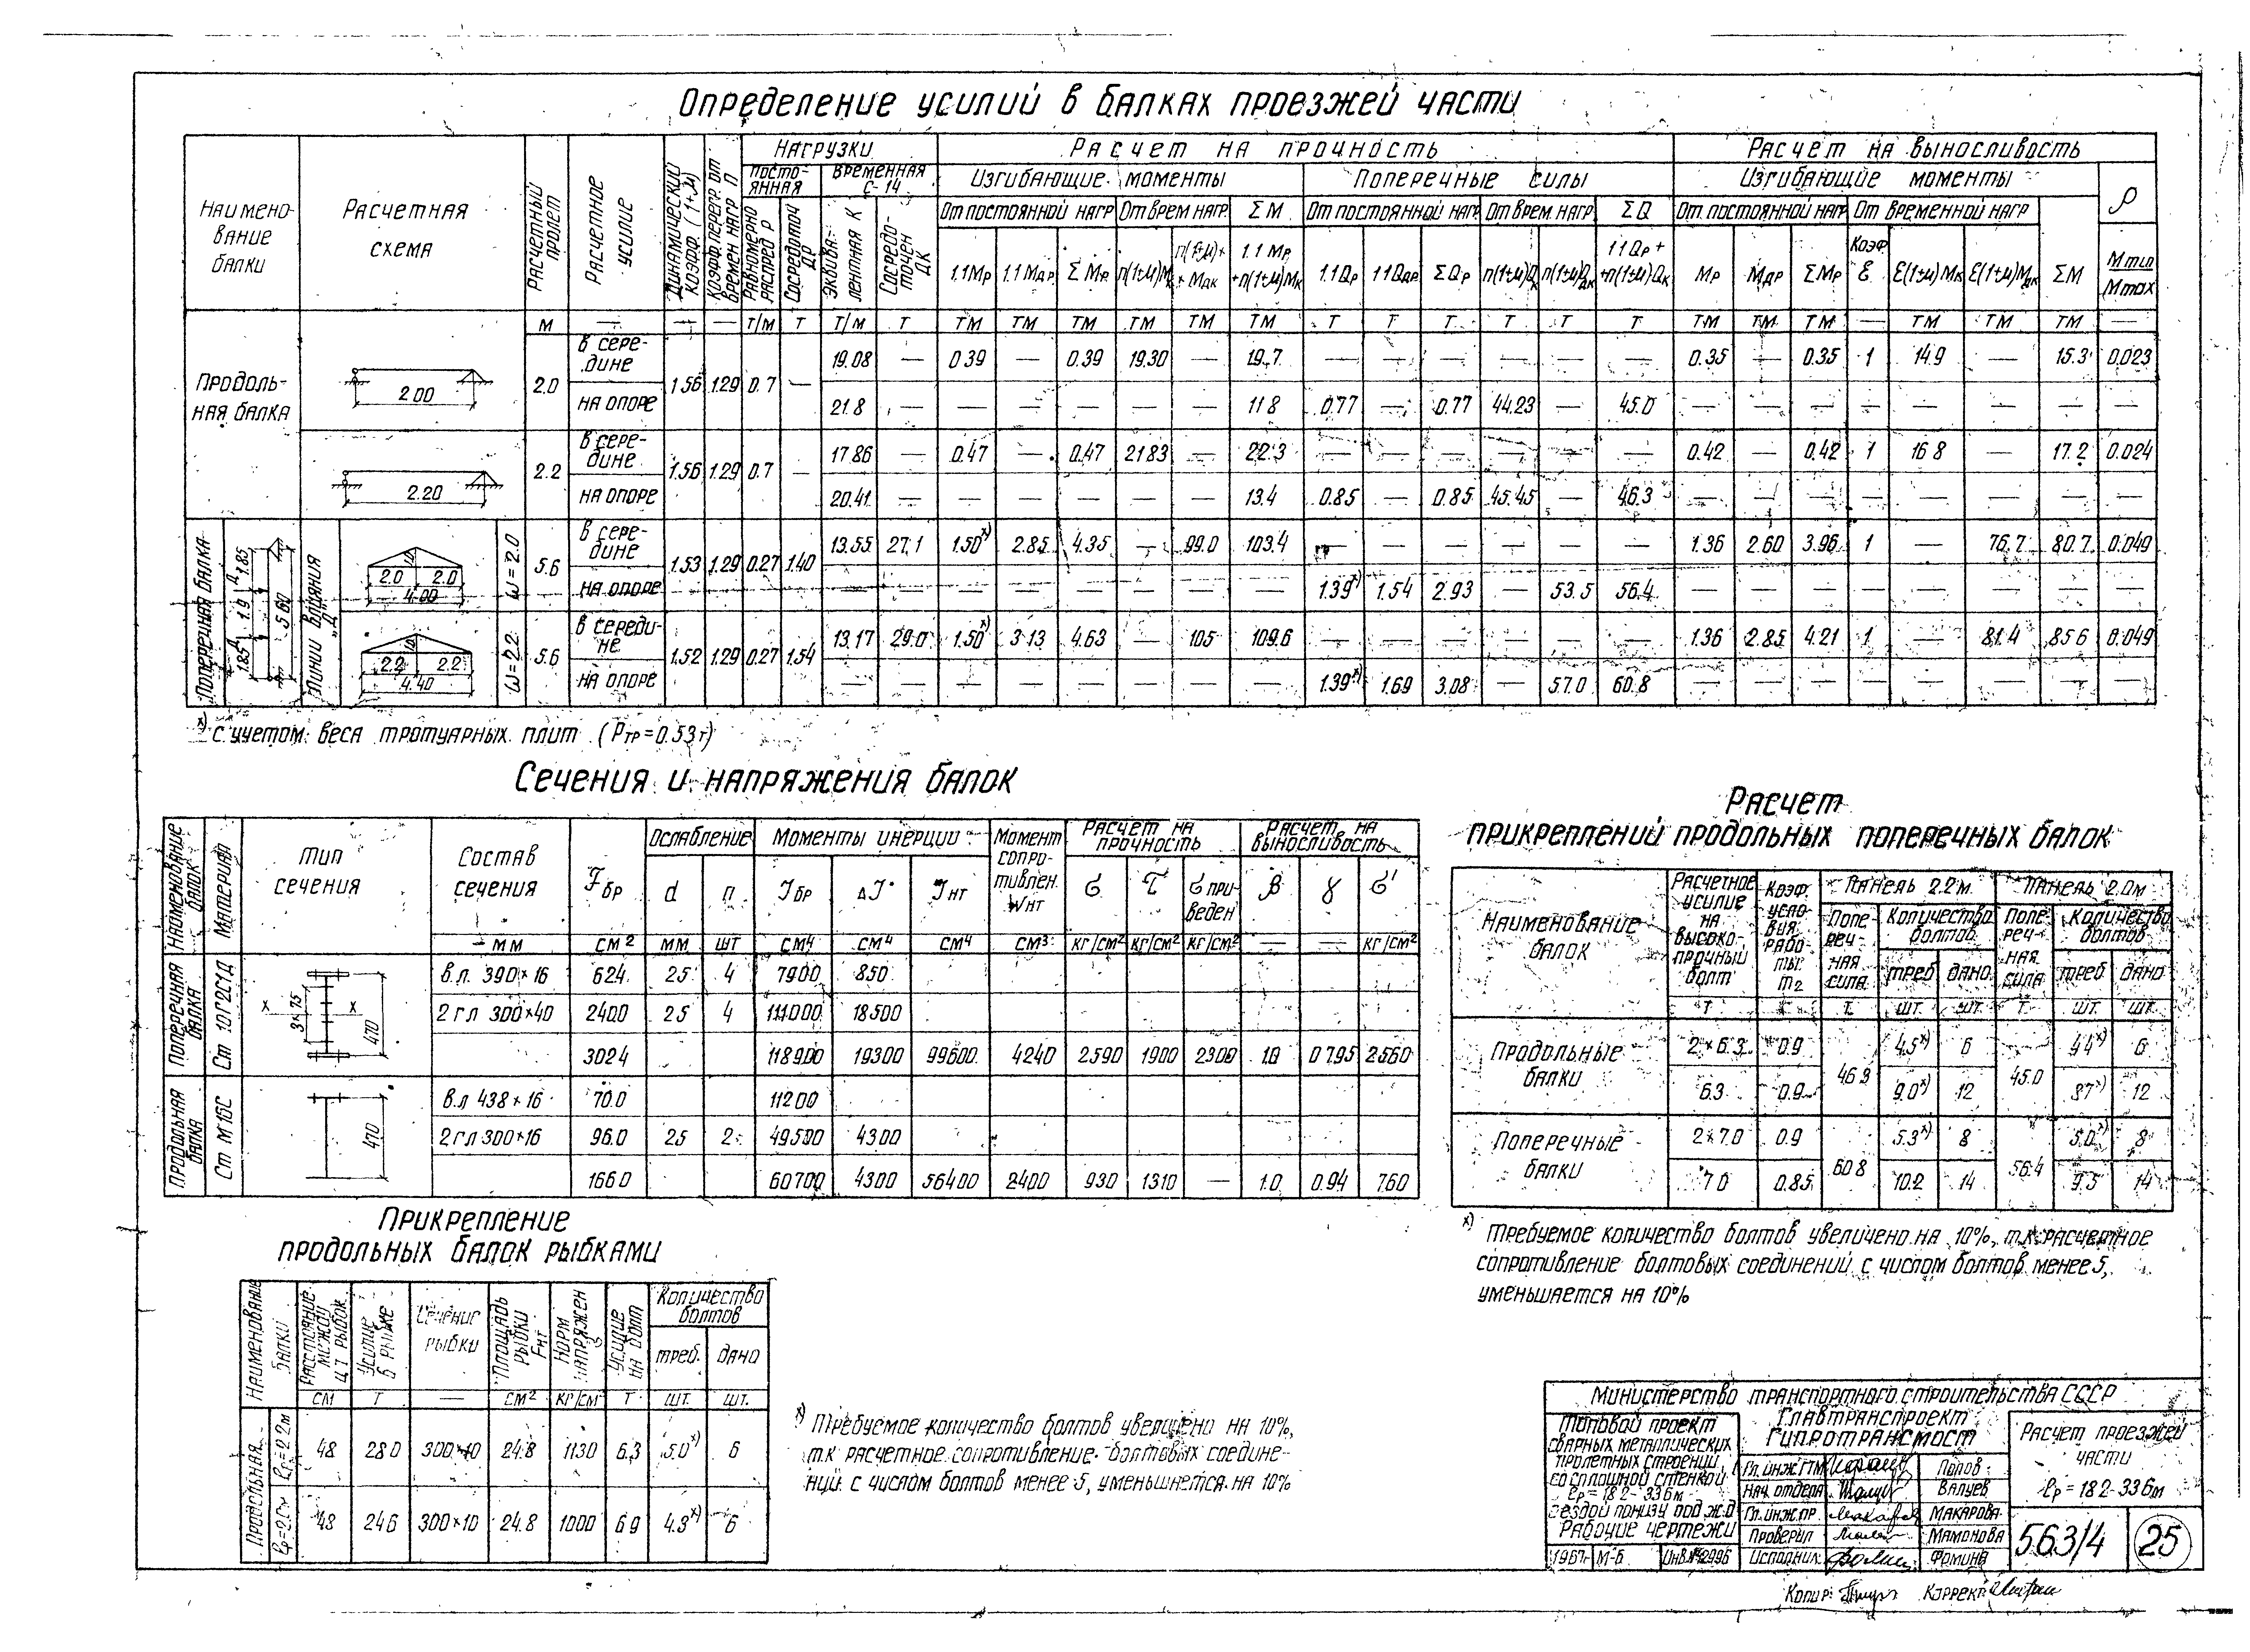 Определение усилий в балках проезжей части
Наимено-
вание
балки
Расчетная
схема
Расчетный
пролет
Расчетное
усилие
Динамический
коэфф. (1+μ)
Коэфф. перегр. от
времен нагр. п
Нагрузки
посто-
янная
временная
С-14
Равномерно
распред Р
Сосредоточ
ДР
Эквива-
лентная К
Сосредо-
точен
ДК
Расчет на прочность
Изгибающие моменты
От постоянной нагр
От врем нагр.
ΣM
1.1Mр 1.1Mдр ΣMр п(1+μ)Mк п(1+μ)+ + Mдк 1.1 Mр +п(1+μ)Mк
Поперечные силы
От постоянной нагр
От врем. нагр
ΣQ
1.1Qр 1.1Qдр ΣQр п(1+μ)Qк п(1+μ)Qдк 1.1Qр + +п(1+μ)Qк
Расчет на выносливость
Изгибающие моменты
От постоянной нагр
От временной нагр
Mр Mдр ΣMр Коэф ε ε(1+μ)Mк ε(1+μ)Mдк ΣM
ρ
M min
M max
м — — — т/м т т/м т тм тм тм тм тм тм т т т т т т тм тм тм — тм тм тм —
Продоль-
ная балка
2.00
2.0 в сере-
дине 1.56 1.29 0.7 — 19.08 — 0.39 — 0.39 19.30 — 19.7 — — — — — — 0.35 — 0.35 1 14.9 — 15.3 0.023
на опоре 21.8 — — — — — — 11.8 0.77 — 0.77 44.23 — 45.0 — — — — — — — —
2.20
2.2 в сере-
дине 1.56 1.29 0.7 — 17.86 — 0.47 — 0.47 21.83 — 22.3 — — — — — — 0.42 — 0.42 1 16.8 — 17.2 0.024
на опоре 20.41 — — — — — — 13.4 0.85 — 0.85 45.45 — 46.3 — — — — — — — —
Поперечная балка
1.85 Д 1.9 Д 1.85
5.60
Линии влияния
„Д“
2.0 2.0
4.00
ω = 2.0
5.6 в сере-
дине 1.53 1.29 0.27 1.40 13.55 27.1 1.50х) 2.85 4.35 — 99.0 103.4 — — — — — — 1.36 2.60 3.96 1 — 76.7 80.7 0.049
на опоре — — — — — — — — 1.39х) 1.54 2.93 — 53.5 56.4 — — — — — — — —
2.2 2.2
4.40
ω = 2.2
5.6 в середи-
не 1.52 1.29 0.27 1.54 13.17 29.0 1.50х) 3.13 4.63 — 105 109.6 — — — — — — 1.36 2.85 4.21 1 — 81.4 85.6 0.049
на опоре — — — — — — — — 1.39х) 1.69 3.08 — 57.0 60.8 — — — — — — — —
х) с учетом веса тротуарных плит (Pтр=0.53т)
Сечения и напряжения балок
Наименование
балок
Материал
Тип
сечения
Состав
сечения
Fбр
Ослабление
d п
Моменты инерции
Jбр ΔJ Jнт
Момент
сопро-
тивлен.
Wнт
Расчет на
прочность
σ τ σ при-
веден
Расчет на
выносливость
β γ σ'
мм см2 мм шт см4 см4 см4 см3 кг/см2 кг/см2 кг/см2 — — кг/см2
Поперечная
балка
Ст 10Г2С1Д
х х
3×75
470
в.л. 390×16 62.4 25 4 7900 850
2 гл 300×40 240.0 25 4 111000 18500
302.4 118900 19300 99600 4240 2590 1900 2300 1.0 0.795 2560
Продольная
балка
Ст М16С
470
в.л 438×16 70.0 11200
2 гл 300×16 96.0 25 2 49500 4300
166.0 60700 4300 56400 2400 930 1310 — 1.0 0.94 760
Расчет
прикреплений продольных поперечных балок
Наименование
балок
Расчетное
усилие
на
высоко-
прочный
болт
Коэф.
усло-
вия
рабо-
ты
m2
Панель 2.2м.
Попе-
реч-
ная
сила
Количество
болтов
треб дано
Панель 2.0м
Попе-
реч-
ная
сила
Количество
болтов
треб дано
т — т шт. шт. т шт. шт.
Продольные
балки
2×6.3 0.9 46.3 4.5х) 6 45.0 4.4х) 6
6.3 0.9 9.0х) 12 8.7х) 12
Поперечные
балки
2×7.0 0.9 60.8 5.3х) 8 56.4 5.0х) 8
7.0 0.85 10.2 14 9.5 14
х) Требуемое количество болтов увеличено на 10%, т.к. расчетное
сопротивление болтовых соединений с числом болтов менее 5,
уменьшается на 10%
Прикрепление
продольных балок рыбками
Наименование
балки
Расстояние
между
ц.т рыбок
Усилие
в рыбке
Сечение
рыбки
Площадь
рыбки
Fнт
Норм
напряжен
σ
Усилие
на болт
Количество
болтов
треб. дано
см т — см2 кг/см2 т шт. шт.
Продольная
ℓр=2.2м 48 28.0 300×10 24.8 1130 6.3 5.0х) 6
ℓр=2.0м 48 24.6 300×10 24.8 1000 6.9 4.3х) 6
х) Требуемое количество болтов увеличено на 10%,
т.к расчетное сопротивление болтовых соедине-
ний с числом болтов менее 5, уменьшается на 10%
Министерство транспортного строительства СССР
Типовой проект
сварных металлических
пролетных строений
со сплошной стенкой
ℓр = 18.2-33.6м
с ездой понизу под ж.д
Рабочие чертежи
1967г М-б Инв.№
Главтранспроект
Гипротрансмост
Гл. инж. ГТМ Попов
Нач. отдела Валуев
Гл. инж. пр. Макарова
Проверил Мамонова
Исполнил Фомина
Расчет проезжей
части
ℓр=18.2-33.6м
563/4
25
Копир: Коррект: